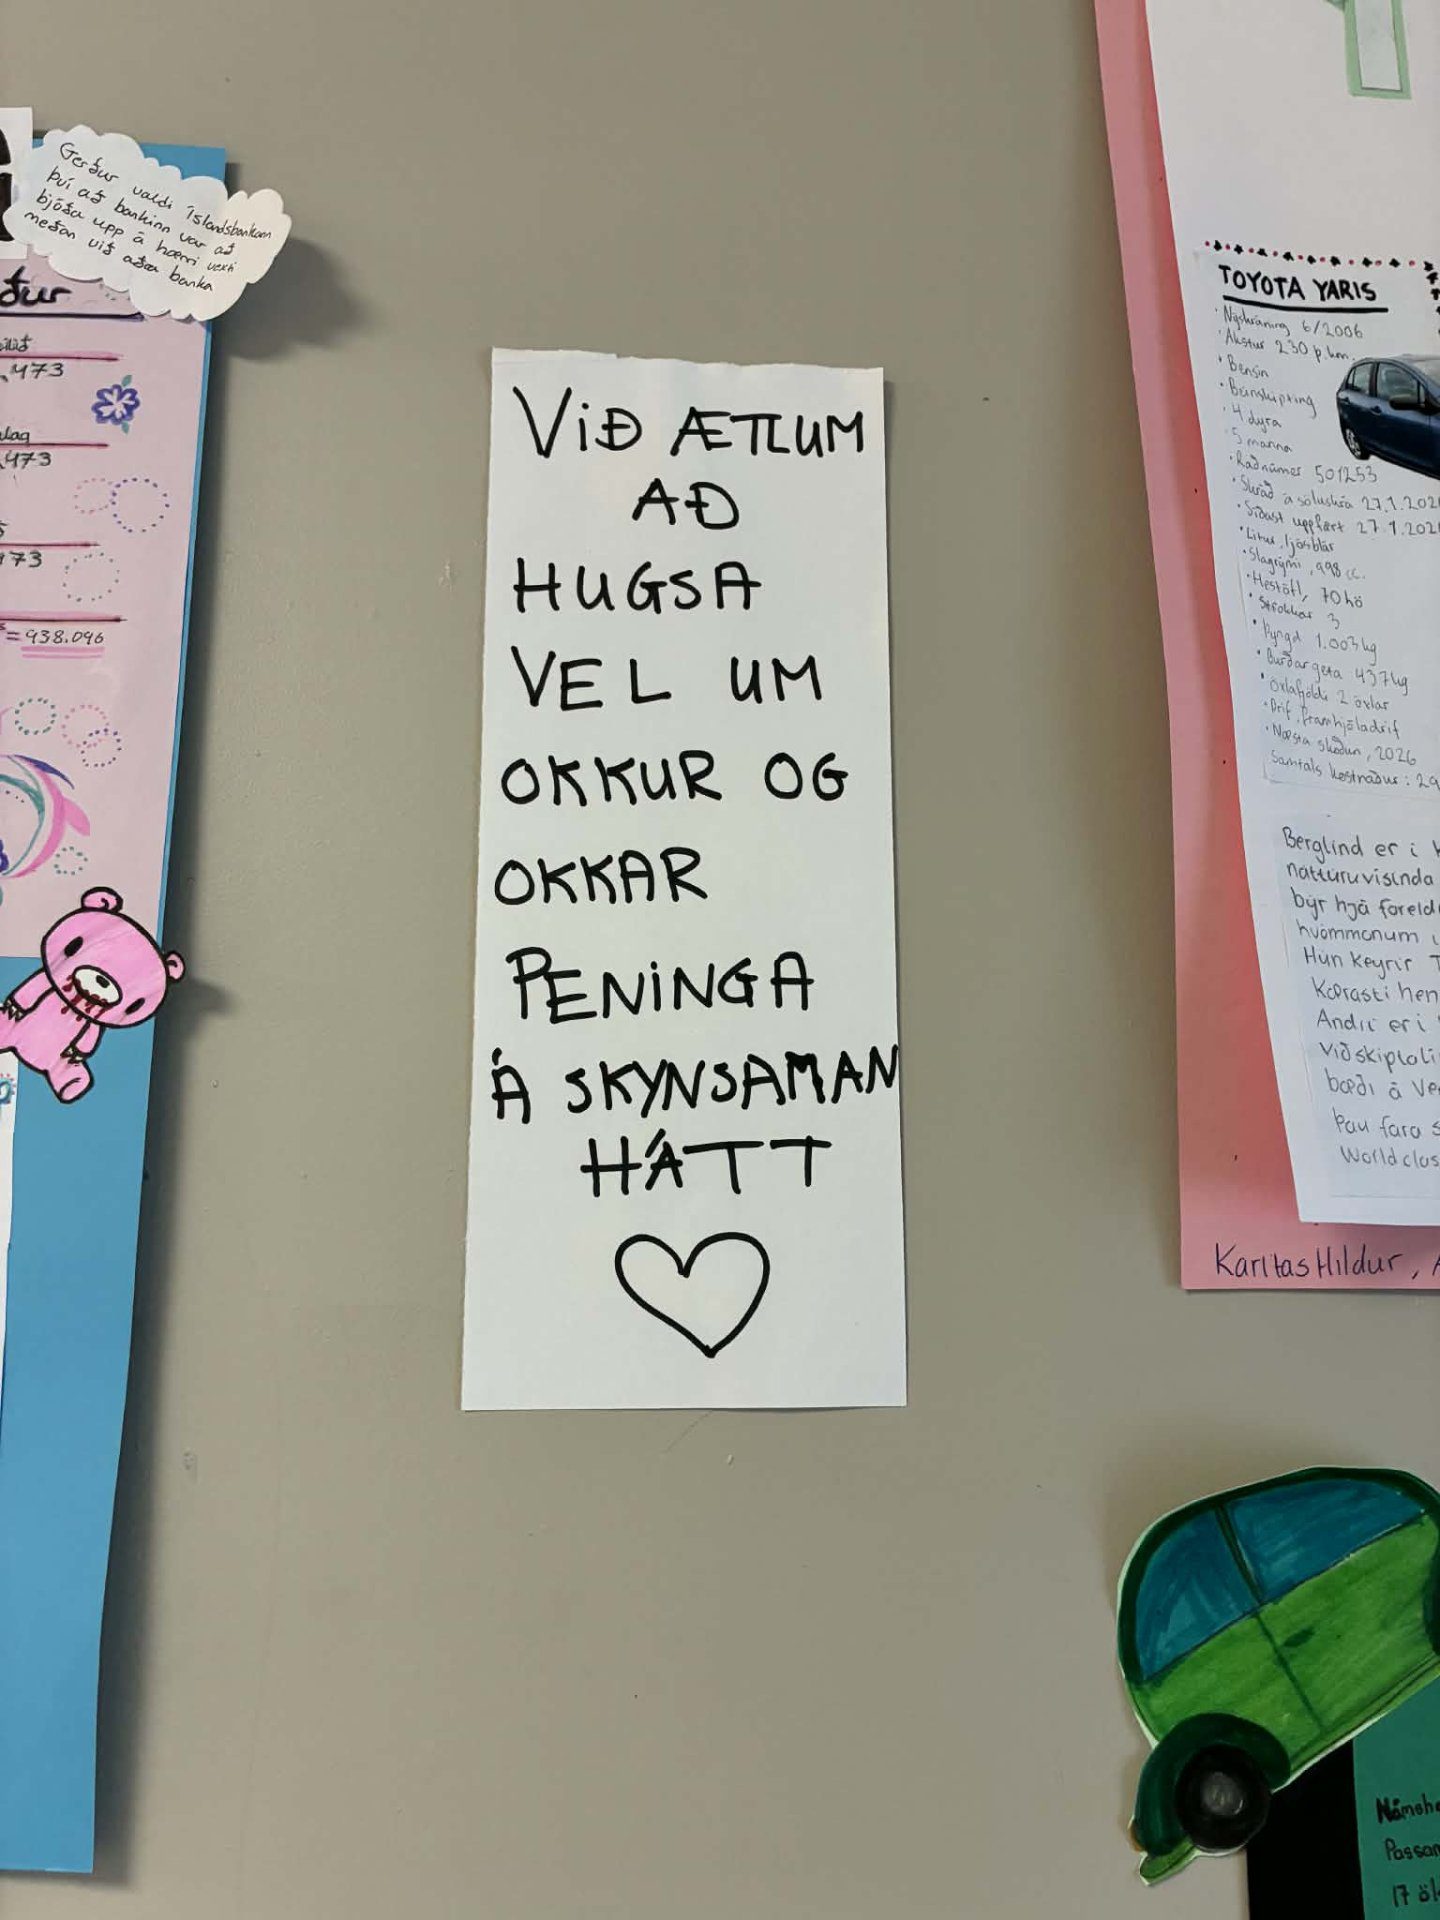 Gerður valdi Íslandsbankann
því að bankinn var að
bjóða upp á hærri vexti
meðan við aðra banka
ður
473
lag
473
973
= 938.096
VIÐ ÆTLUM
AÐ
HUGSA
VEL UM
OKKUR OG
OKKAR
PENINGA
Á SKYNSAMAN
HÁTT
TOYOTA YARIS
• Nýskráning 6/2006
• Akstur 230 þ.km.
• Bensín
• Beinskipting
• 4 dyra
• 5 manna
• Raðnúmer 501253
• Skráð á söluskrá 27.1.202
• Síðast uppfært 27.1.202
• Litur, ljósblár
• Slagrými, 998 cc.
• Hestöfl, 70 hö
• Strokkar 3
• Þyngd 1.003 kg
• Burðargeta 437 kg
• Öxlafjöldi 2 öxlar
• Drif, framhjóladrif
• Næsta skoðun, 2026
Samtals kostnaður: 29
Berglind er í
náttúruvísinda
býr hjá foreld
hvömmonum
Hún keyrir T
Kærasti hen
Andri er í
Viðskiptali
bæði á Ve
Þau fara s
World clas
Karitas Hildur, A
Námsh
Passar
17 öl